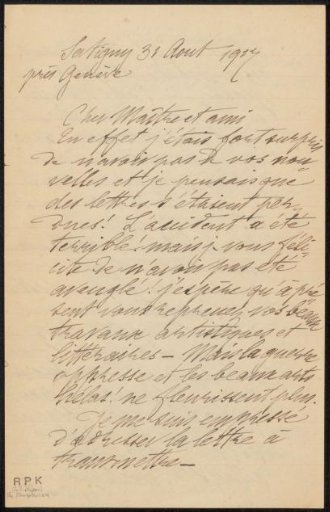 Satigny 31 Aout 1917
près Genève
Cher Maître et ami
En effet j'étais fort surpris
de n'avoir pas de vos nou
velles et je pensais que
des lettres s'étaient per-
dues! L'accident a été
terrible mais je vous féli
cite de n'avoir pas été
aveuglé. J'espère qu'à pré
sent vous reprenez vos beaux
travaux artistiques et
littéraires – Mais la guerre
oppresse et les beaux arts
hélas! ne fleurissent plus.
Je me suis empressé
d'adresser la lettre à
transmettre –
RPK